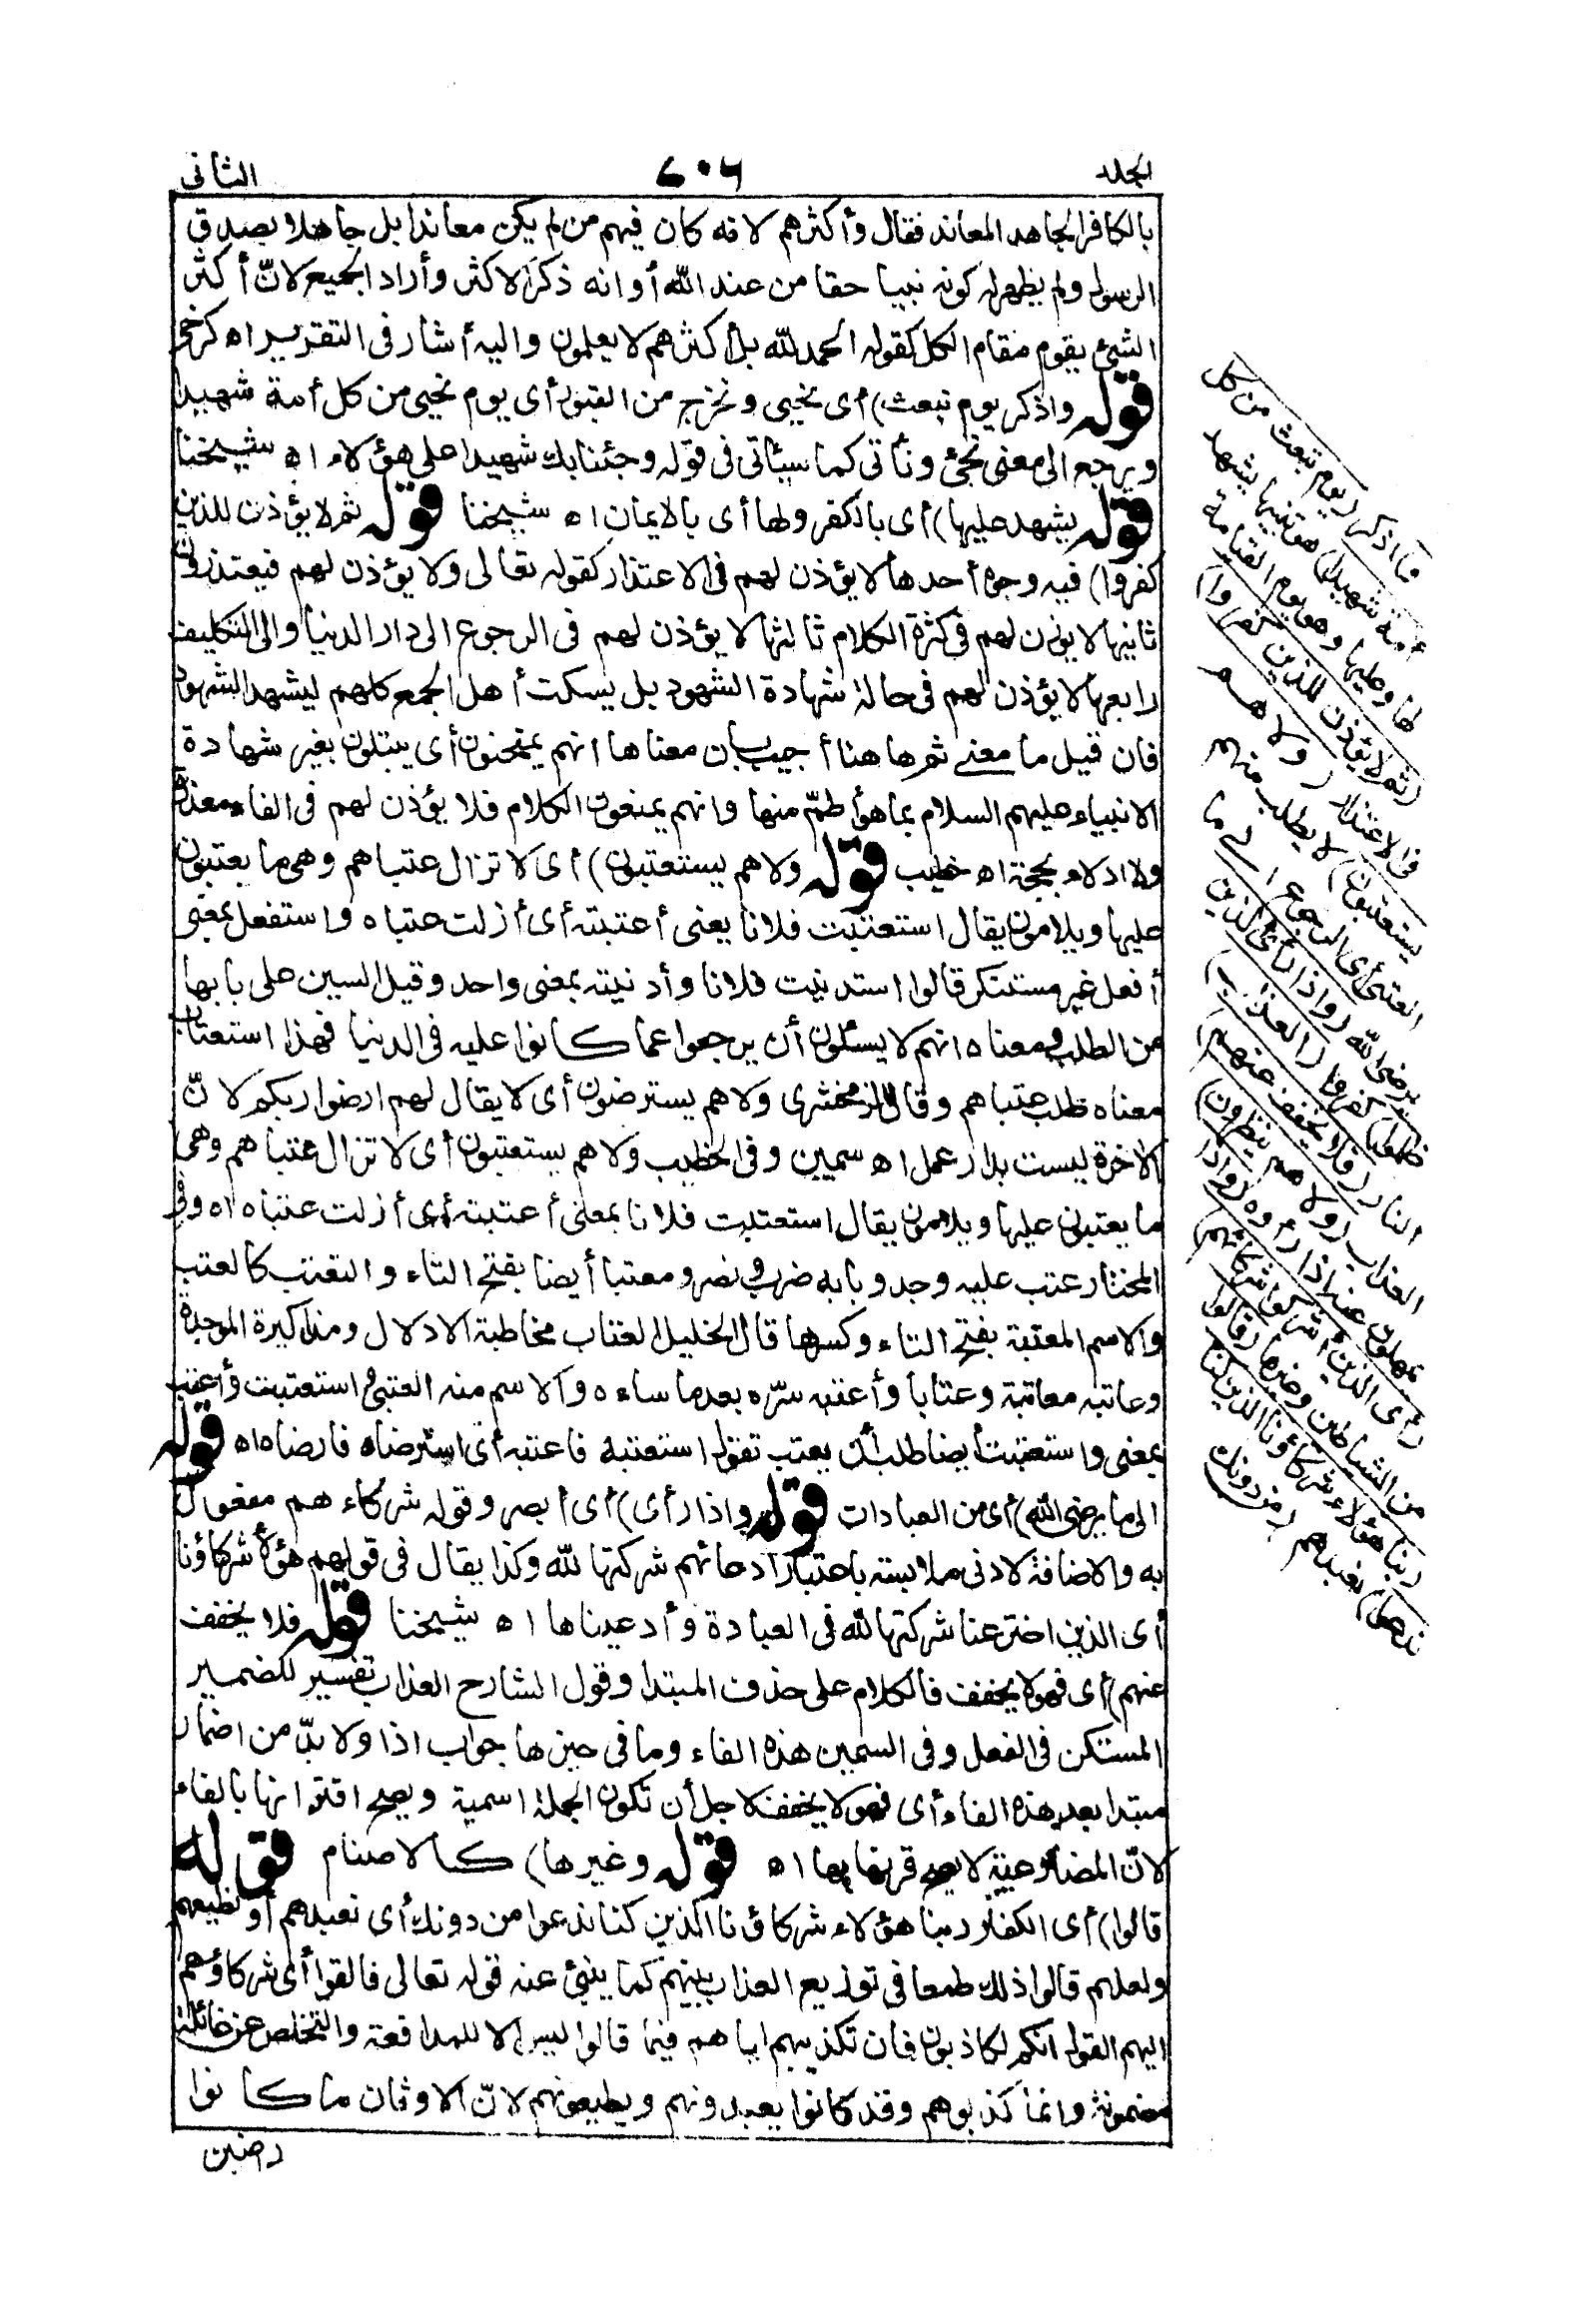 الجلد
٦٠٦
الثاني
بالكافر الجاهد المعاند فقال وأكثرهم لانه كان فيهم من لم يكن معاندا بل جاهلا بصدق
الرسول ولم يظهر له كونه نبيا حقا من عند الله أو انه ذكر الاكثر وأراد الجميع لانّ أكثر
الشيئ يقوم مقام الكل كقوله الحمد لله بل أكثرهم لا يعلمون واليه أشار فى التقرير اه كرخى
قوله واذكر يوم نبعث) أى نحيى ونخرج من القبور أى يوم نحيى من كل أمة شهيدا
ويرجع الى معنى نجئ ونأتى كما سيأتى فى قوله وجئنا بك شهيدا على هؤلاء اه شيخنا
قوله يشهد عليها) أى بالكفر ولها أى بالايمان اه شيخنا قوله ثم لا يؤذن للذين
كفروا) فيه وجوه أحدها لا يؤذن لهم فى الاعتذار كقوله تعالى ولا يؤذن لهم فيعتذرون
ثانيها لا يؤذن لهم فى كثرة الكلام ثالثها لا يؤذن لهم فى الرجوع الى دار الدنيا والى التكليف
رابعها لا يؤذن لهم فى حالة شهادة الشهود بل يسكت أهل الجمع كلهم ليشهد الشهود
فان قيل ما معنى ثم ها هنا أجيب بأن معناها انهم يمتحنون أى يبتلون بغير شهادة
الانبياء عليهم السلام بما هو أطمّ منها وانهم يمنعون الكلام فلا يؤذن لهم فى القاء معذرة
ولا ادلاء بحجة اه خطيب قوله ولا هم يستعتبون) أى لا تزال عتباهم وهى ما يعتبون
عليها ويلامون يقال استعتبت فلانا يعنى أعتبته أى أزلت عتباه واستفعل بمعنى
أفعل غير مستنكر قالوا استدنيت فلانا وأدنيته بمعنى واحد وقيل السين على بابها
من الطلب ومعناه انهم لا يسئلون أن يرجعوا عما كانوا عليه فى الدنيا فهذا استعتاب
معناه طلب عتباهم وقال الزمخشرى ولا هم يسترضون أى لا يقال لهم ارضوا ربكم لانّ
الاخرة ليست بدار عمل اه سمين وفى الخطيب ولا هم يستعتبون أى لا تزال عتباهم وهى
ما يعتبون عليها ويلامون يقال استعتبت فلانا بمعنى أعتبته أى أزلت عتباه اه وفى
المختار عتب عليه وجد وبابه ضرب ونصر ومعتبا أيضا بفتح التاء والتعتب كالعتب
والاسم المعتبة بفتح التاء وكسرها قال الخليل العتاب مخاطبة الادلال ومذاكرة الموجدة
وعاتبه معاتبة وعتابا وأعتبه سرّه بعدما ساءه والاسم منه العتبى واستعتبت وأعتب
بمعنى واستعتبت أيضا طلب أن يعتب تقول استعتبه فاعتبه أى استرضاه فارضاه اه قوله
الى ما يرضى الله) أى من العبادات قوله واذا رأى) أى أبصر وقوله شركاءهم مفعول
به والاضافة لادنى ملابسة باعتبار ادعائهم شركتها لله وكذا يقال فى قولهم هؤلاء شركاؤنا
أى الذين اخترعنا شركتها لله فى العبادة وأدعيناها اه شيخنا قوله فلا يخفف
عنهم) أى فهو لا يخفف فالكلام على حذف المبتدا وقول الشارح العذاب تفسير للضمير
المستكن فى الفعل وفى السمين هذه الفاء وما فى حيزها جواب اذا ولا بدّ من اضمار
مبتدا بعد هذه الفاء أى فهو لا يخفف لاجل أن تكون الجملة اسمية ويصح اقترانها بالفاء
لانّ المضارعية لا يصح قرنها بها اه قوله وغيرها) كالاصنام قوله
قالوا) أى الكفار ربنا هؤلاء شركاؤنا الذين كنا ندعوا من دونك أى نعبدهم أو نطيعهم
ولعلهم قالوا ذلك طمعا فى توزيع العذاب بينهم كما ينبئ عنه قوله تعالى فالقوا أى شركاؤهم
اليهم القول انكم لكاذبون فان تكذيبهم اياهم فيما قالوا ليس الا للمدافعة والتخلص عن غائلة
مضمونه وانما كذبوهم وقد كانوا يعبدونهم ويطيعونهم لانّ الاوثان ما كانوا
راضين
و) اذكر (يوم نبعث من كل
أمة شهيدا) هو نبيها يشهد
لها وعليها وهو يوم القيامة
(ثم لا يؤذن للذين كفروا)
فى الاعتذار (ولا هم
يستعتبون) لا يطلب منهم
العتبى أى الرجوع الى ما
يرضى الله (واذا رأى الذين
ظلموا) كفروا (العذاب)
النار (فلا يخفف عنهم)
العذاب (ولا هم ينظرون)
يمهلون عنه اذا رأوه (واذا
رأى الذين أشركوا شركاءهم)
من الشياطين وغيرها (قالوا
ربنا هؤلاء شركاؤنا الذين كنا
ندعوا) نعبدهم (من دونك